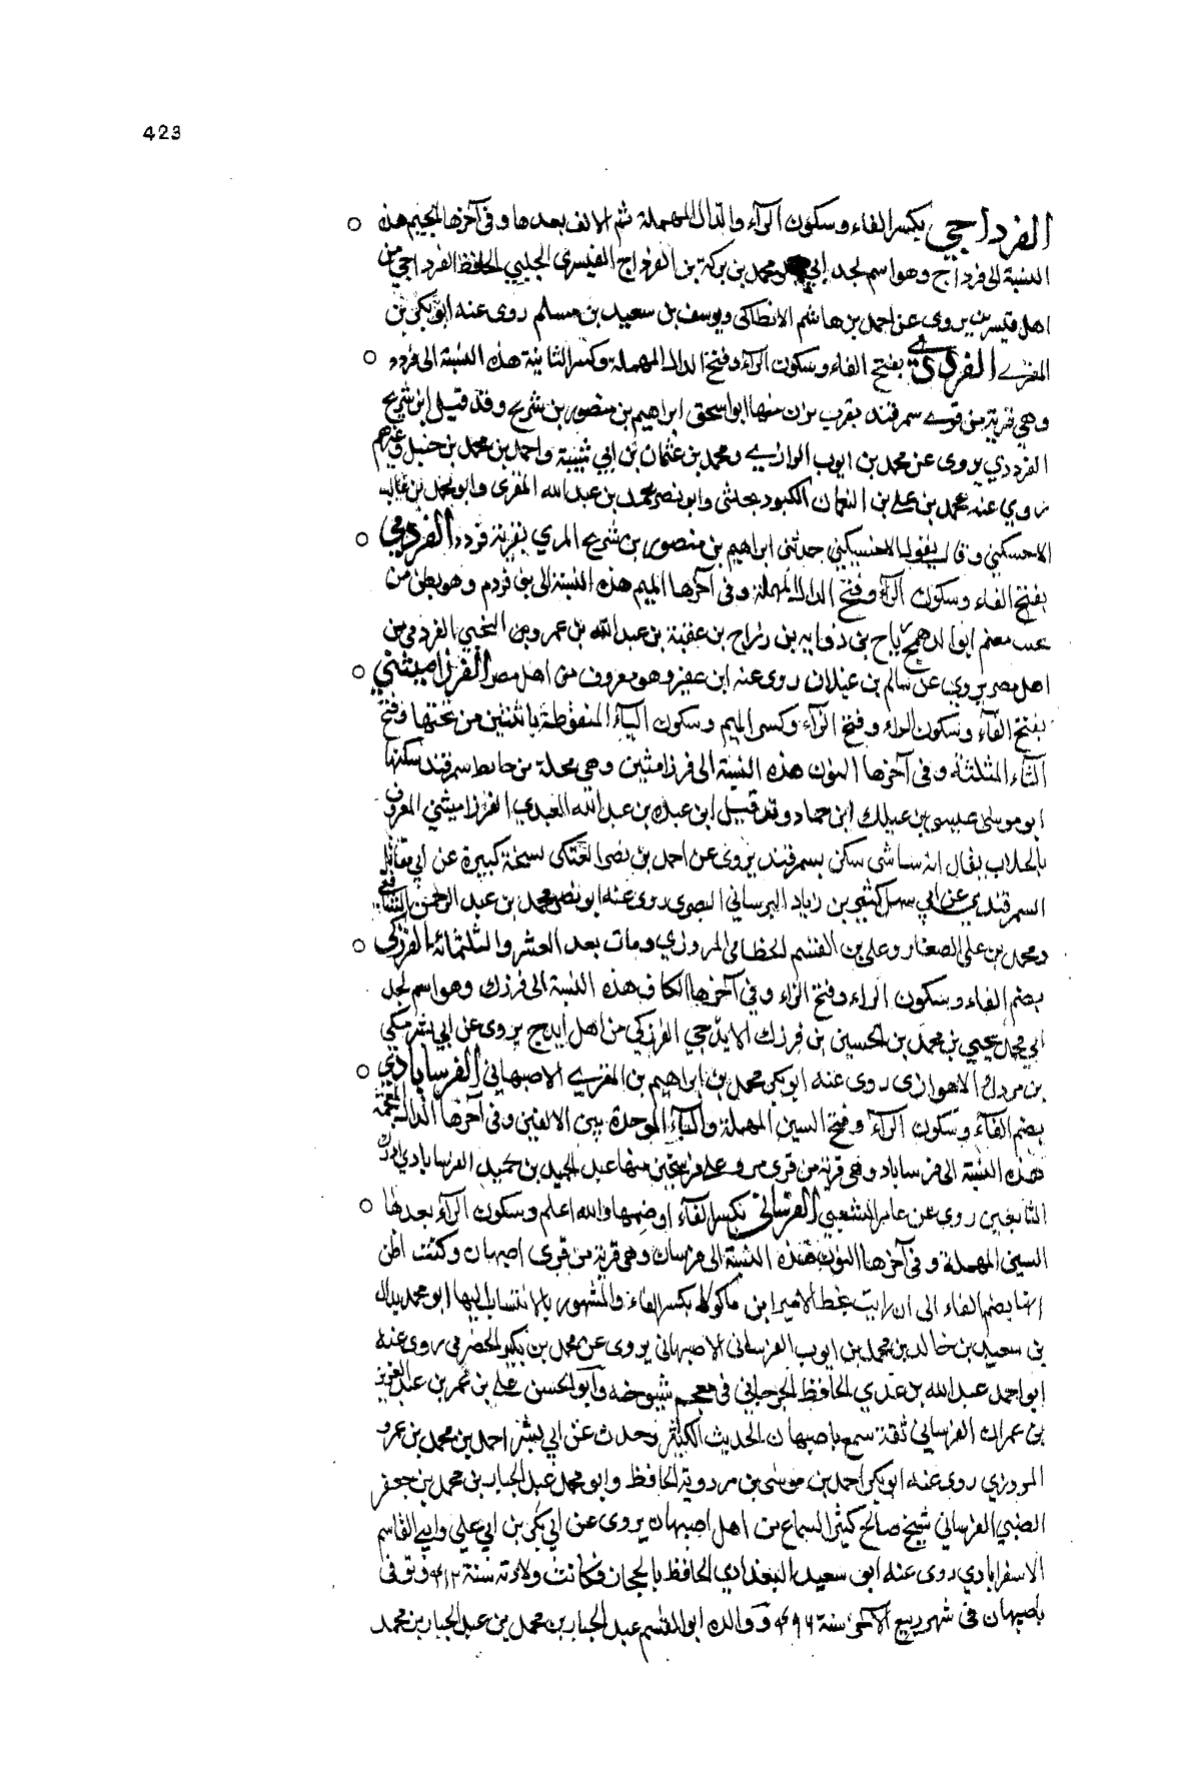 423
الفرداجي بكسر الفاء وسكون الرآء والدال المهملة ثم الالف بعدها وفى آخرها الجيم هذه
النسبة الى فرداج وهو اسم لجد ابي محمد بن بركة بن الفرداج القيسرى الحلبي الحافظ الفرداجي من
اهل قنسرين يروى عن احمد بن هاشم الانطاكى ويوسف بن سعيد بن مسلم روى عنه ابو بكر بن
المقرئ الفرددي بفتح الفاء وسكون الرآء وفتح الدال المهملة وكسر الثانية هذه النسبة الى فردد
وهي قرية من قرى سمرقند بقرب منها ابو اسحق ابراهيم بن منصور بن شريح وقد قيل ابن شريح
الفرددي يروى عن محمد بن ايوب الرازي ومحمد بن عثمان بن ابي شيبة واحمد بن محمد بن حنبل وغيرهم
روي عنه محمد بن علي بن النعمان الكبودنجكثى وابو نصر محمد بن عبد الله المقرى وابو محمد بن غالب
وقال حدثنى ابراهيم بن منصور بن شريح بقرية فردد الفردمي
بفتح الفاء وسكون الرآء وفتح الدال المهملة وفى آخرها الميم هذه النسبة الى بنى فردم وهو بطن من
منهم ابو بن بن عقبة بن عبد الله بن عمرو بن الفردمي من
اهل مصر يروي عن سالم بن غيلان روى عنه ابن عفير وهو معروف من اهل مصر الفرزاميثني
بفتح الفآء وسكون الراء وفتح الزآء وكسر الميم وسكون اليآء المنقوطة باثنتين من تحتها وفتح
الثآء المثلثة وفى آخرها النون هذه النسبة الى فرزاميثن وهى محلة من حايط سمرقند سكنها
ابو موسى عيسى بن عبدك ابن حماد وقد قيل ابن عبده بن عبد الله العبدي الفرزاميثني المعروف
بالجلاب يقال انه شاشى سكن بسمرقند يروى عن احمد بن نصر العتكى نسخة كبيرة عن ابي مقاتل
السمرقندي عن ابي سهل كثير بن زياد البرساني البصرى روى عنه ابو نصر محمد بن عبد الرحمن
ومحمد بن على الصفار وعلى بن القسم الخطابى المروزي ومات بعد العشر والثلثمائة الفرزكي
بضم الفاء وسكون الراء وفتح الزاء وفي آخرها الكاف هذه النسبة الى فرزك وهو اسم لجد
ابي محمد يحيى بن محمد بن الحسين بن فرزك الايذجي الفرزكي من اهل ايذج يروى عن ابي
بن مردك الاهوازى روى عنه ابو بكر محمد بن ابراهيم بن المقرئ الاصبهاني الفرساباذي
بضم الفآء وسكون الرآء وفتح السين المهملة والبآء الموحدة بين الالفين وفى آخرها الذال المعجمة
هذه النسبة الى فرساباد وهى قرية من قرى مرو على فرسخين منها عبد الحميد بن حميد الفرساباذي ادرك
التابعين روى عن عامر الشعبي الفرساني بكسر الفآء او ضمها والله اعلم وسكون الرآء بعدها
السين المهملة وفى آخرها النون هذه النسبة الى فرسان وهى قرية من قرى اصبهان وكنت اظن
انها بضم الفاء الى ان رايت بخط الامير ابن ماكولا بكسر الفاء والمشهور بالانتساب اليها ابو محمد بدال
بن سعيد بن خالد بن محمد بن ايوب الفرسانى الاصبهانى يروى عن محمد بن بكير الحضرمى روى عنه
ابو احمد عبد الله بن عدي الحافظ الجرجاني فى معجم شيوخه وابو الحسن علي بن عمر بن عبد العزيز
بن عمران الفرساني ثقة سمع باصبهان الحديث الكثير وحدث عن ابي بشر احمد بن محمد بن عمرو
المروزي روى عنه ابو بكر احمد بن موسى بن مردوية الحافظ وابو محمد عبد الجبار بن محمد بن جعفر
الضبي الفرساني شيخ صالح كثير السماع من اهل اصبهان يروى عن ابي بكر بن ابي علي وابي القاسم
الاسفراباذي روى عنه ابو سعيد البغدادي الحافظ بالحجاز وكانت ولادته سنة ٤١٢ وتوفى
باصبهان فى شهر ربيع الآخر سنة ٤٩٦ ووالده ابو القسم عبد الجبار بن محمد بن عبد الجبار بن محمد